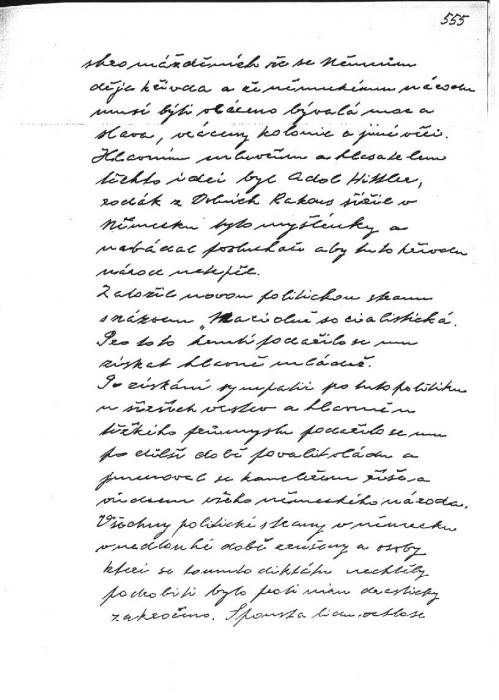 555
shromážděních že se Němcům
děje křivda a že německému národu
musí býti vráceno bývalá moc a
sláva, vráceny kolonie a jiné věci.
Hlavním mluvčím a hlasatelem
těchto idei byl Adolf Hittler,
rodák z Dolních Rakous šířil v
Německu tyto myšlenky a
nabádal posluchače aby tuto křivdu
národ netrpěl.
Založil novou politickou stranu
s názvem „Nacionálně socialistická.
Pro toto hnutí podařilo se mu
získat hlavně mládež.
Po získání sympatií pro tuto politiku
u širších vrstev a hlavně u
těžkého průmyslu podařilo se mu
po delší době povalit vládu a
jmenoval se kancléřem říše a
vůdcem všeho německého národa.
Všechny politické strany v německu
v nedlouhé době zrušeny a osoby
kteří se tomuto diktátu nechtěly
podrobiti bylo proti nim drasticky
zakročeno. Spousta lidu